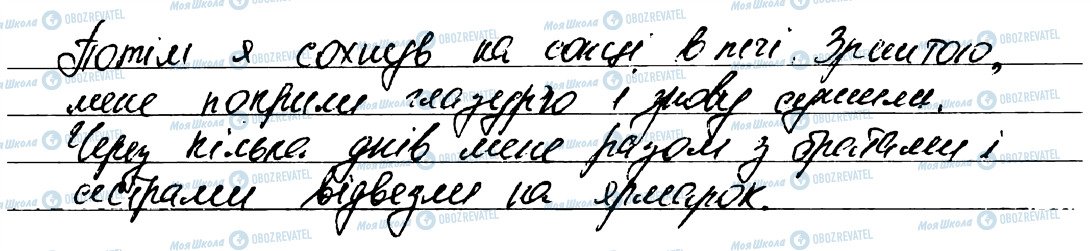 Потім я сохнув на сонці в печі. Зрештою,
мене покрили глазур'ю і знову сушили.
Через кілька днів мене разом з братами і
сестрами відвезли на ярмарок.